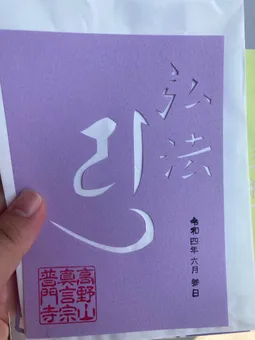 弘法
令和四年六月参日
高野山
真言宗
普門寺